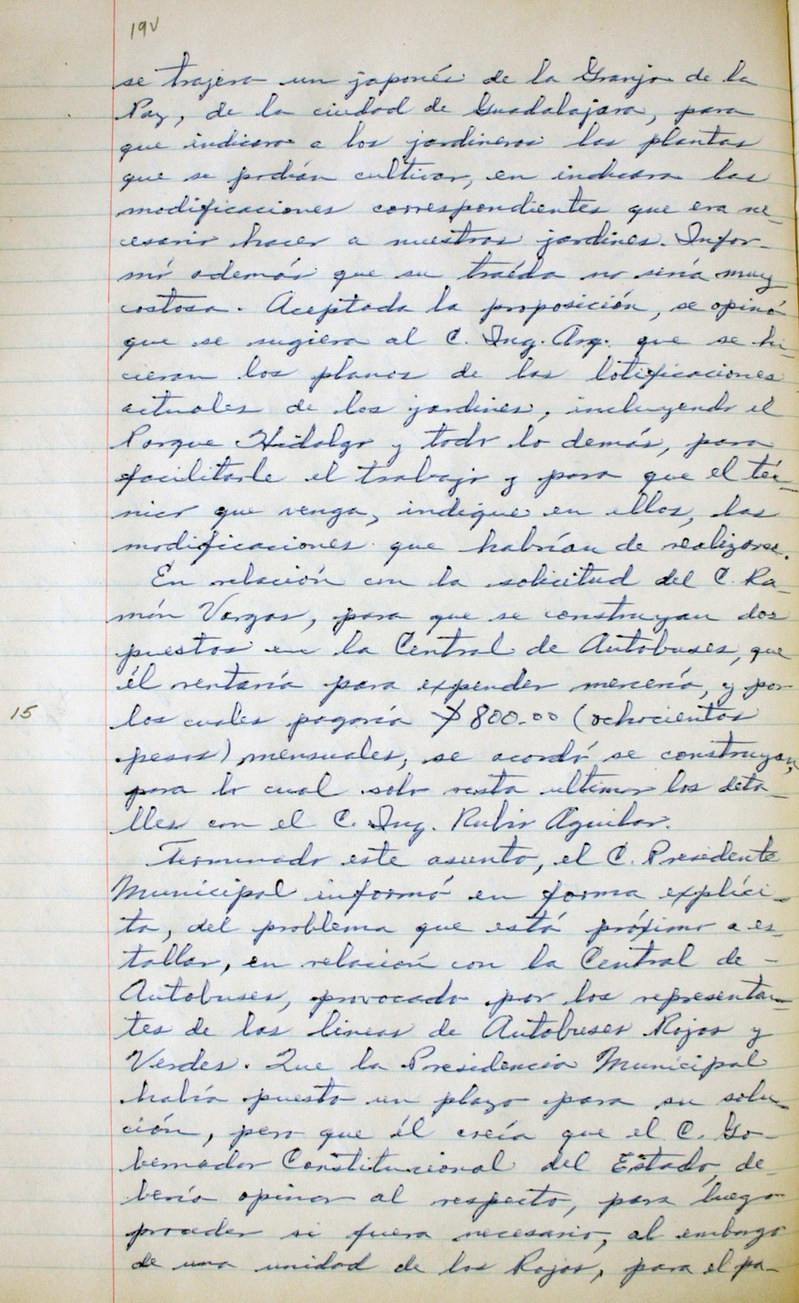 19V
se trajera un japonés de la Granja de la
Paz, de la ciudad de Guadalajara, para
que indicara a los jardineros las plantas
que se podían cultivar, en indicara las
modificaciones correspondientes que era ne-
cesario hacer a nuestros jardines. Infor-
mó además que su traída no sería muy
costosa. Aceptada la proposición, se opinó
que se sugiera al C. Ing. Arq. que se hi-
cieran los planos de las lotificaciones
actuales de los jardines, incluyendo el
Parque Hidalgo y todo lo demás, para
facilitarle el trabajo y para que el téc-
nico que venga, indique en ellos, las
modificaciones que habrían de realizarse.
En relación con la solicitud del C. Ra-
món Vargas, para que se construyan dos
puestos en la Central de Autobuses, que
él rentaría para expender mercería, y por
15
los cuales pagaría $800.00 (ochocientos
pesos) mensuales, se acordó se construyan,
para lo cual solo resta ultimar los deta-
lles con el C. Ing. Rubio Aguilar.
Terminado este asunto, el C. Presidente
Municipal informó en forma explíci-
ta, del problema que está prójimo a es-
tallar, en relación con la Central de -
Autobuses, provocado por los representan-
tes de las lineas de Autobuses Rojos y
Verdes. Que la Presidencia Municipal
había puesto un plazo para su solu-
ción, pero que él creía que el C. Go-
bernador Constitucional del Estado, de-
bería opinar al respecto, para luego
proceder si fuera necesario, al embargo
de una unidad de los Rojos, para el pa-